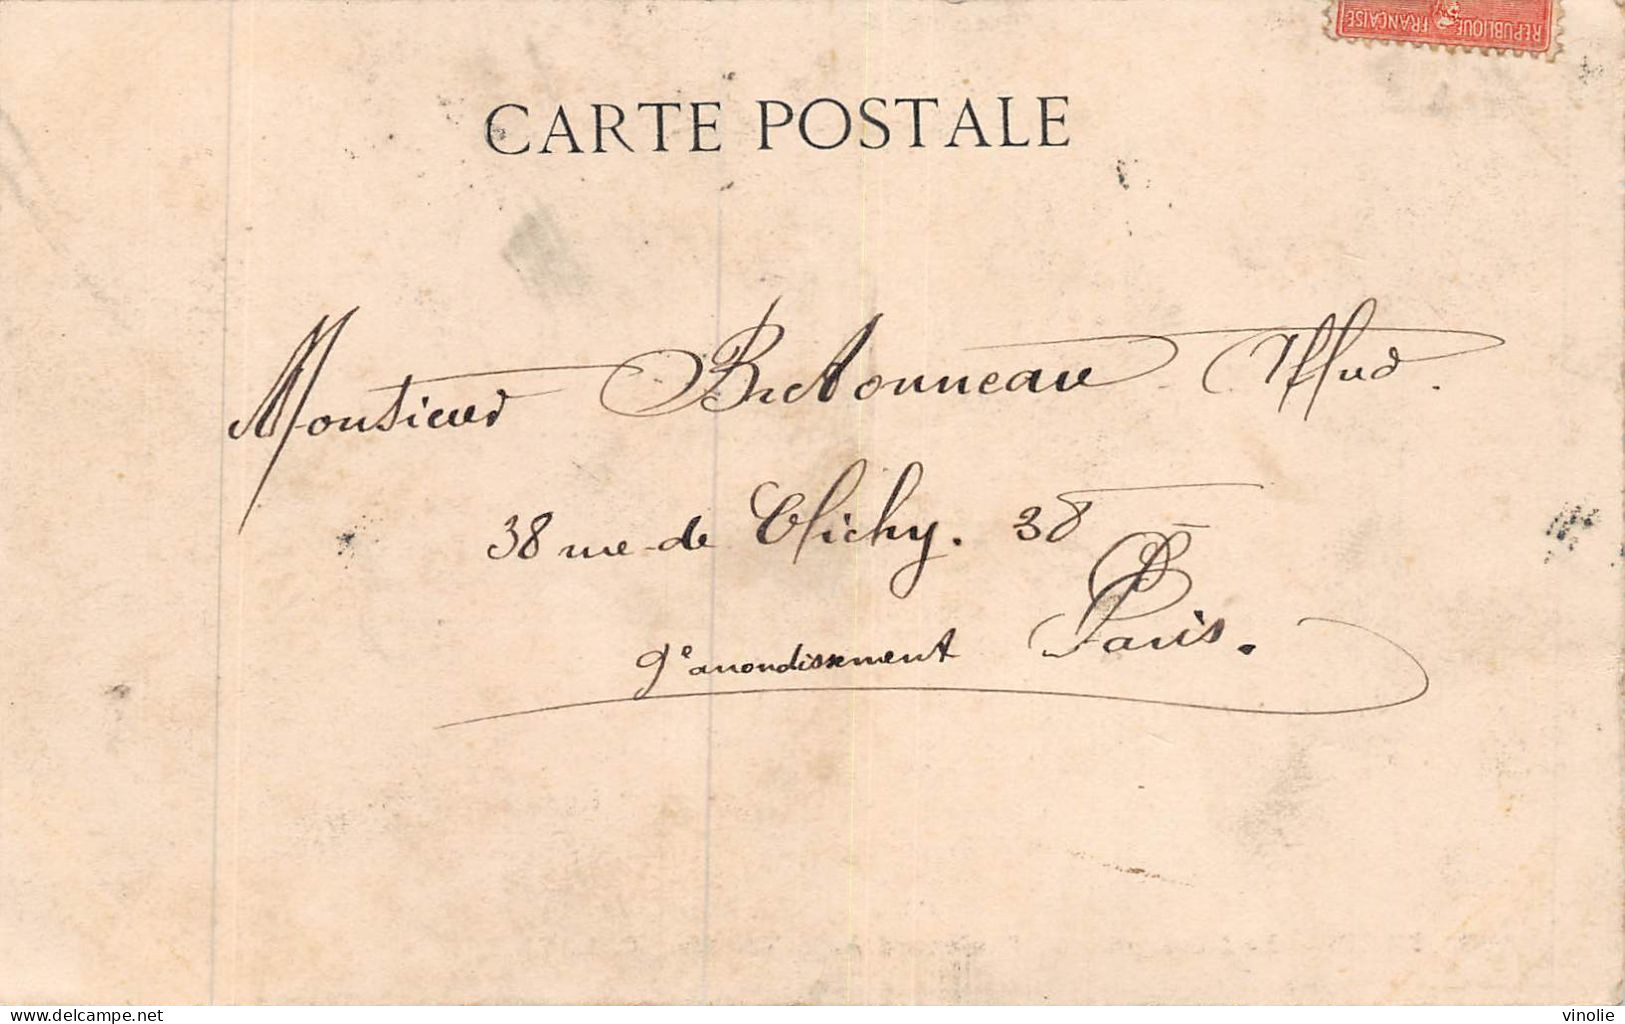 REPUBLIQUE FRANÇAISE
CARTE POSTALE
Monsieur Bretonneau
38 rue de Clichy. 38
9e arrondissement Paris.
delcampe.net
vinolie